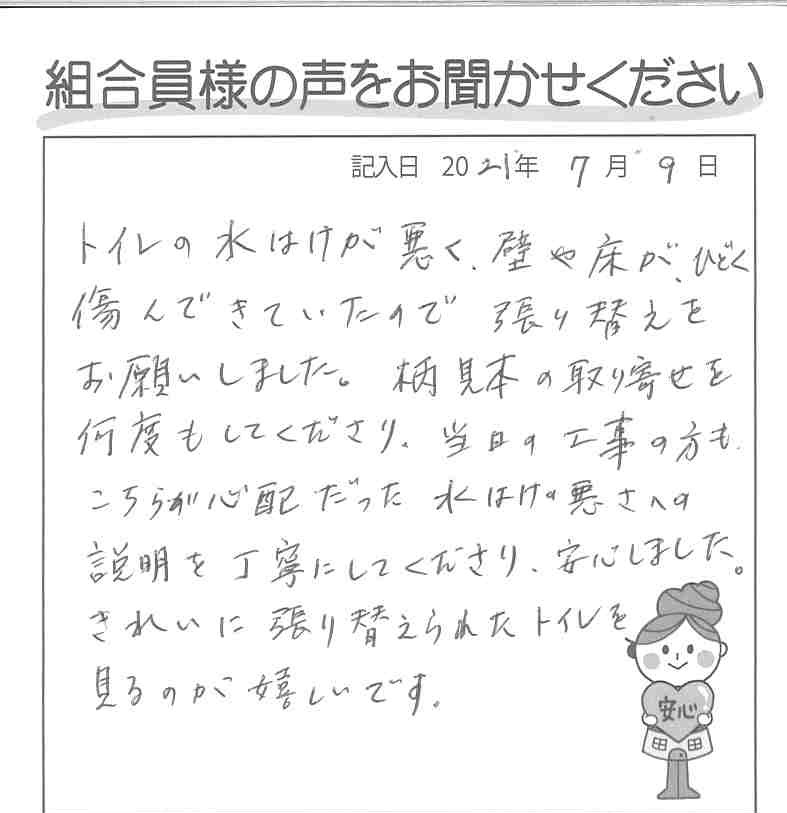 組合員様の声をお聞かせください
記入日 2021年 7月 9日
トイレの水はけが悪く、壁や床が、ひどく
傷んできていたので張り替えを
お願いしました。柄見本の取り寄せを
何度もしてくださり、当日の工事の方も、
こちらが心配だった水はけの悪さへの
説明を丁寧にしてくださり、安心しました。
きれいに張り替えられたトイレを
見るのが嬉しいです。
安心